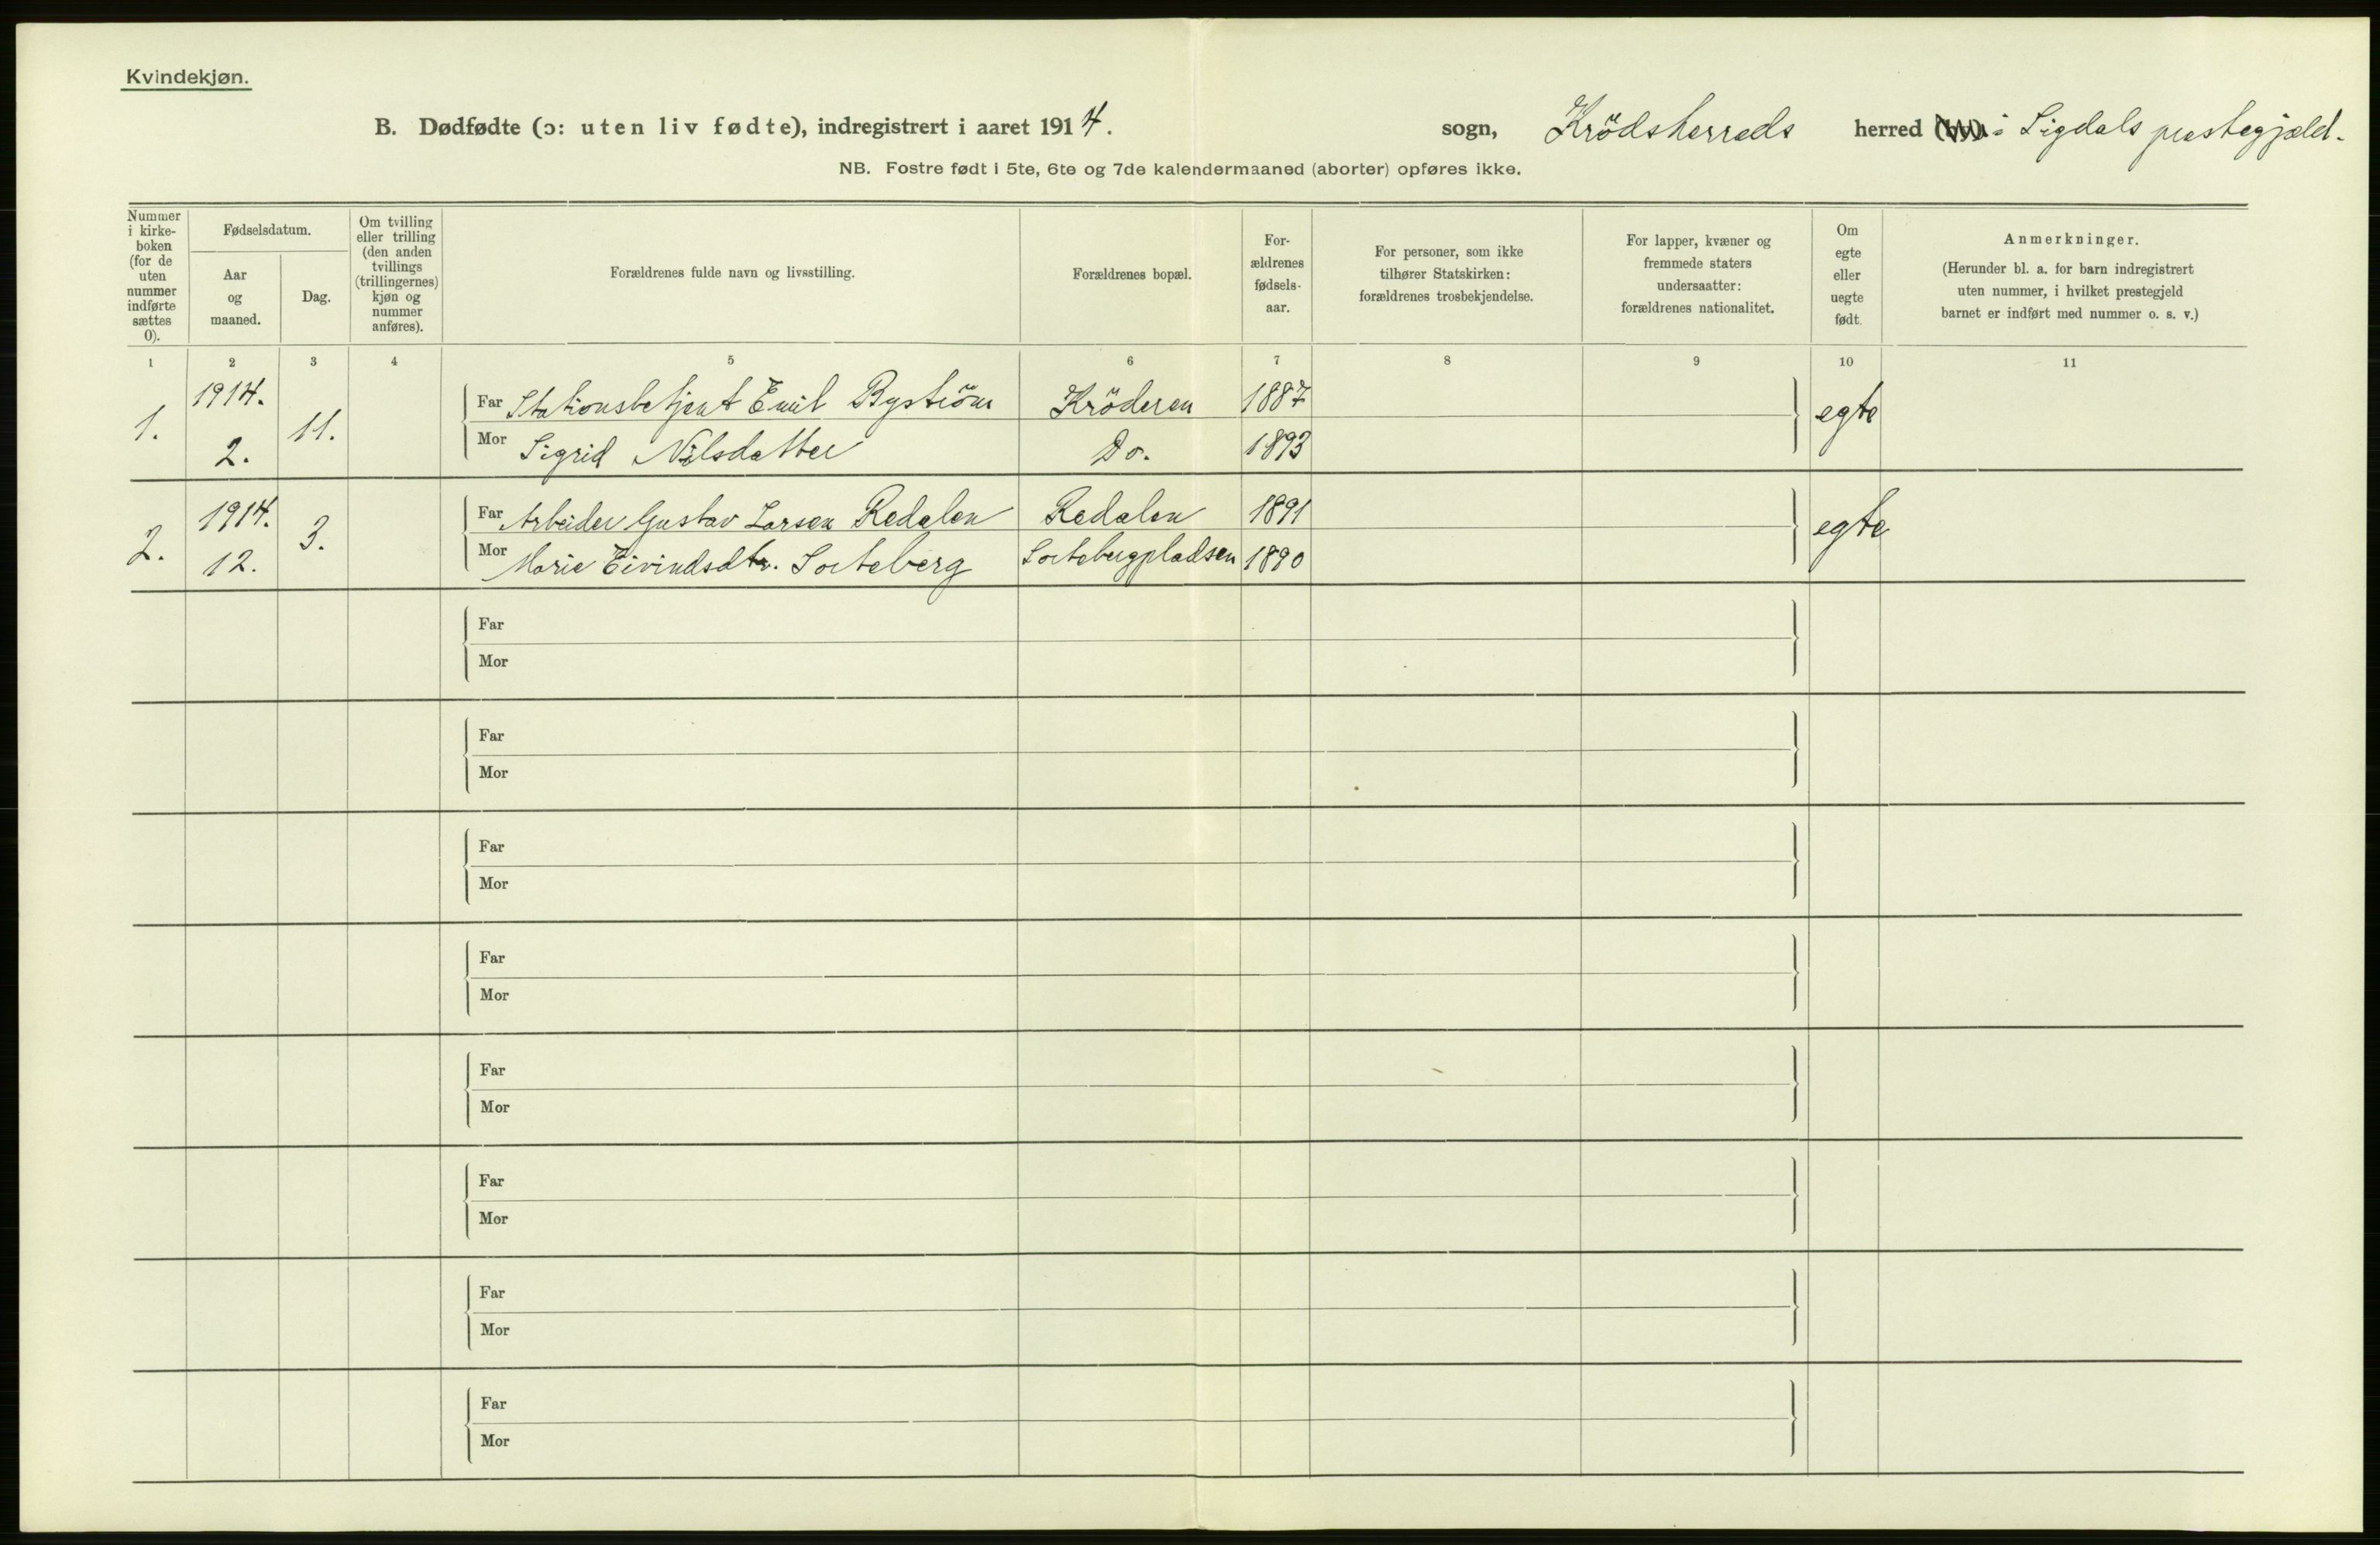 Kvindekjøn.
B. Dødfødte (ɔ: uten liv fødte), indregistrert i aaret 1914. sogn, Krödsherreds herred i Sigdals prestegjæld.
NB. Fostre født i 5te, 6te og 7de kalendermaaned (aborter) opføres ikke.
Nummer
i kirke-
boken
(for de
uten
nummer
indførte
sættes
0).
Fødselsdatum.
Aar
og
maaned.
Dag.
Om tvilling
eller trilling
(den anden
tvillings
(trillingernes)
kjøn og
nummer
anføres).
Forældrenes fulde navn og livsstilling.
Forældrenes bopæl.
For-
ældrenes
fødsels-
aar.
For personer, som ikke
tilhører Statskirken:
forældrenes trosbekjendelse.
For lapper, kvæner og
fremmede staters
undersaatter:
forældrenes nationalitet.
Om
egte
eller
uegte
født.
Anmerkninger.
(Herunder bl. a. for barn indregistrert
uten nummer, i hvilket prestegjeld
barnet er indført med nummer o. s. v.)
1 2 3 4 5 6 7 8 9 10 11
1. 1914. 2. 11.
Far Stationsbetjent Emil Byström Kröderen 1887 egte
Mor Sigrid Nilsdatter Do. 1893
2. 1914. 12. 3.
Far Arbeider Gustav Larsen Redalen Redalen 1891 egte
Mor Marie Eivindsdtr. Sorteberg Sortebergpladsen 1890
Far
Mor
Far
Mor
Far
Mor
Far
Mor
Far
Mor
Far
Mor
Far
Mor
Far
Mor